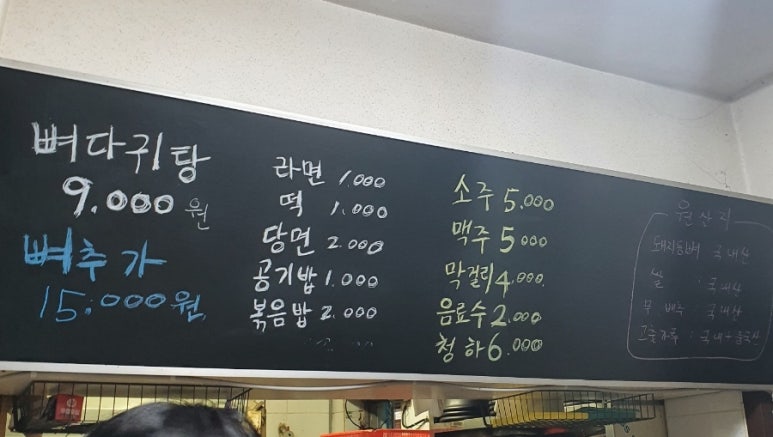 뼈다귀탕
9.000 원
뼈추가
15:000원
라면 1.000
떡 1.000
당면 2.000
공기밥 1.000
볶음밥 2.000
소주 5.000
맥주 5000
막걸리 4.000
음료수 2.000
청하 6.000
원산지
돼지등뼈 국내산
쌀 : 국내산
무, 배추 : 국내산